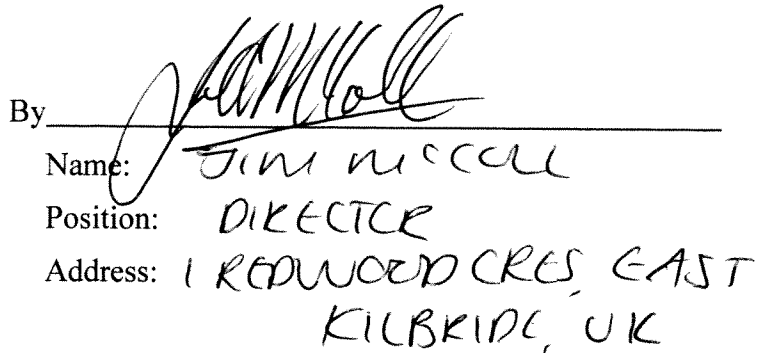 By
Name: JIM MCCOLL
Position: DIRECTOR
Address: 1 REDWOOD CRES, EAST
KILBRIDE, UK